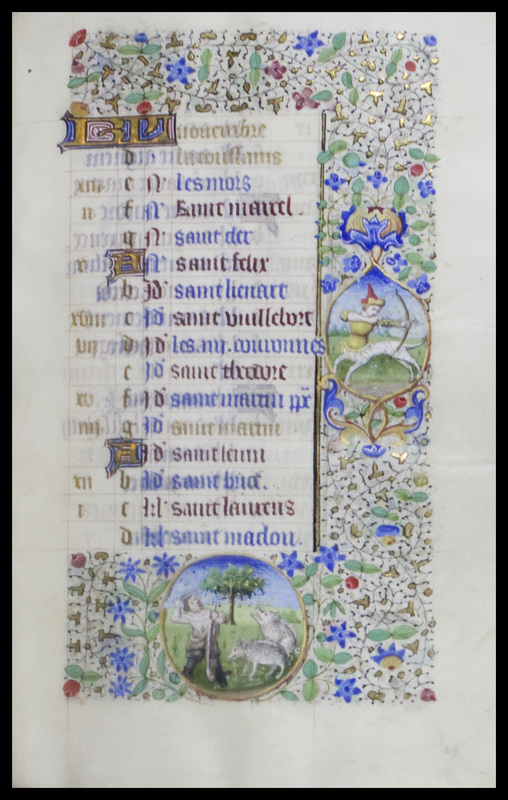 KL nouembre
d La toussains
xiii e N les mors
ii f N Saint marcel.
g N saint cler
x A N saint felix
b Id saint lienart
xviii c Id saint vuillebort
vii d Id les iiii. couronnes
e Id saint theodore
xv f Id saint martin pp
iiii g Id saint martin
A Id saint leuin
xii b Id saint brice.
i c kl saint laurens
d kl saint maclou.